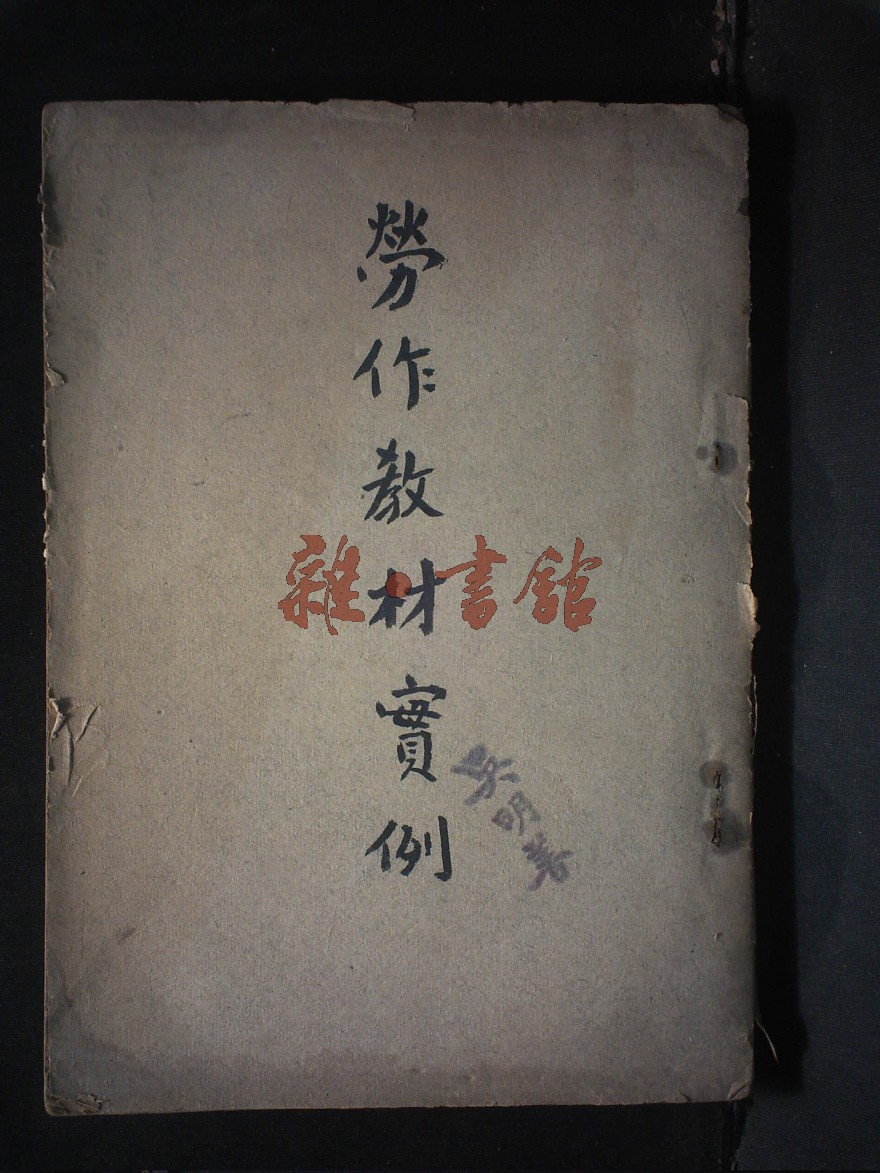 勞作教材實例
吳明善
雜·書館